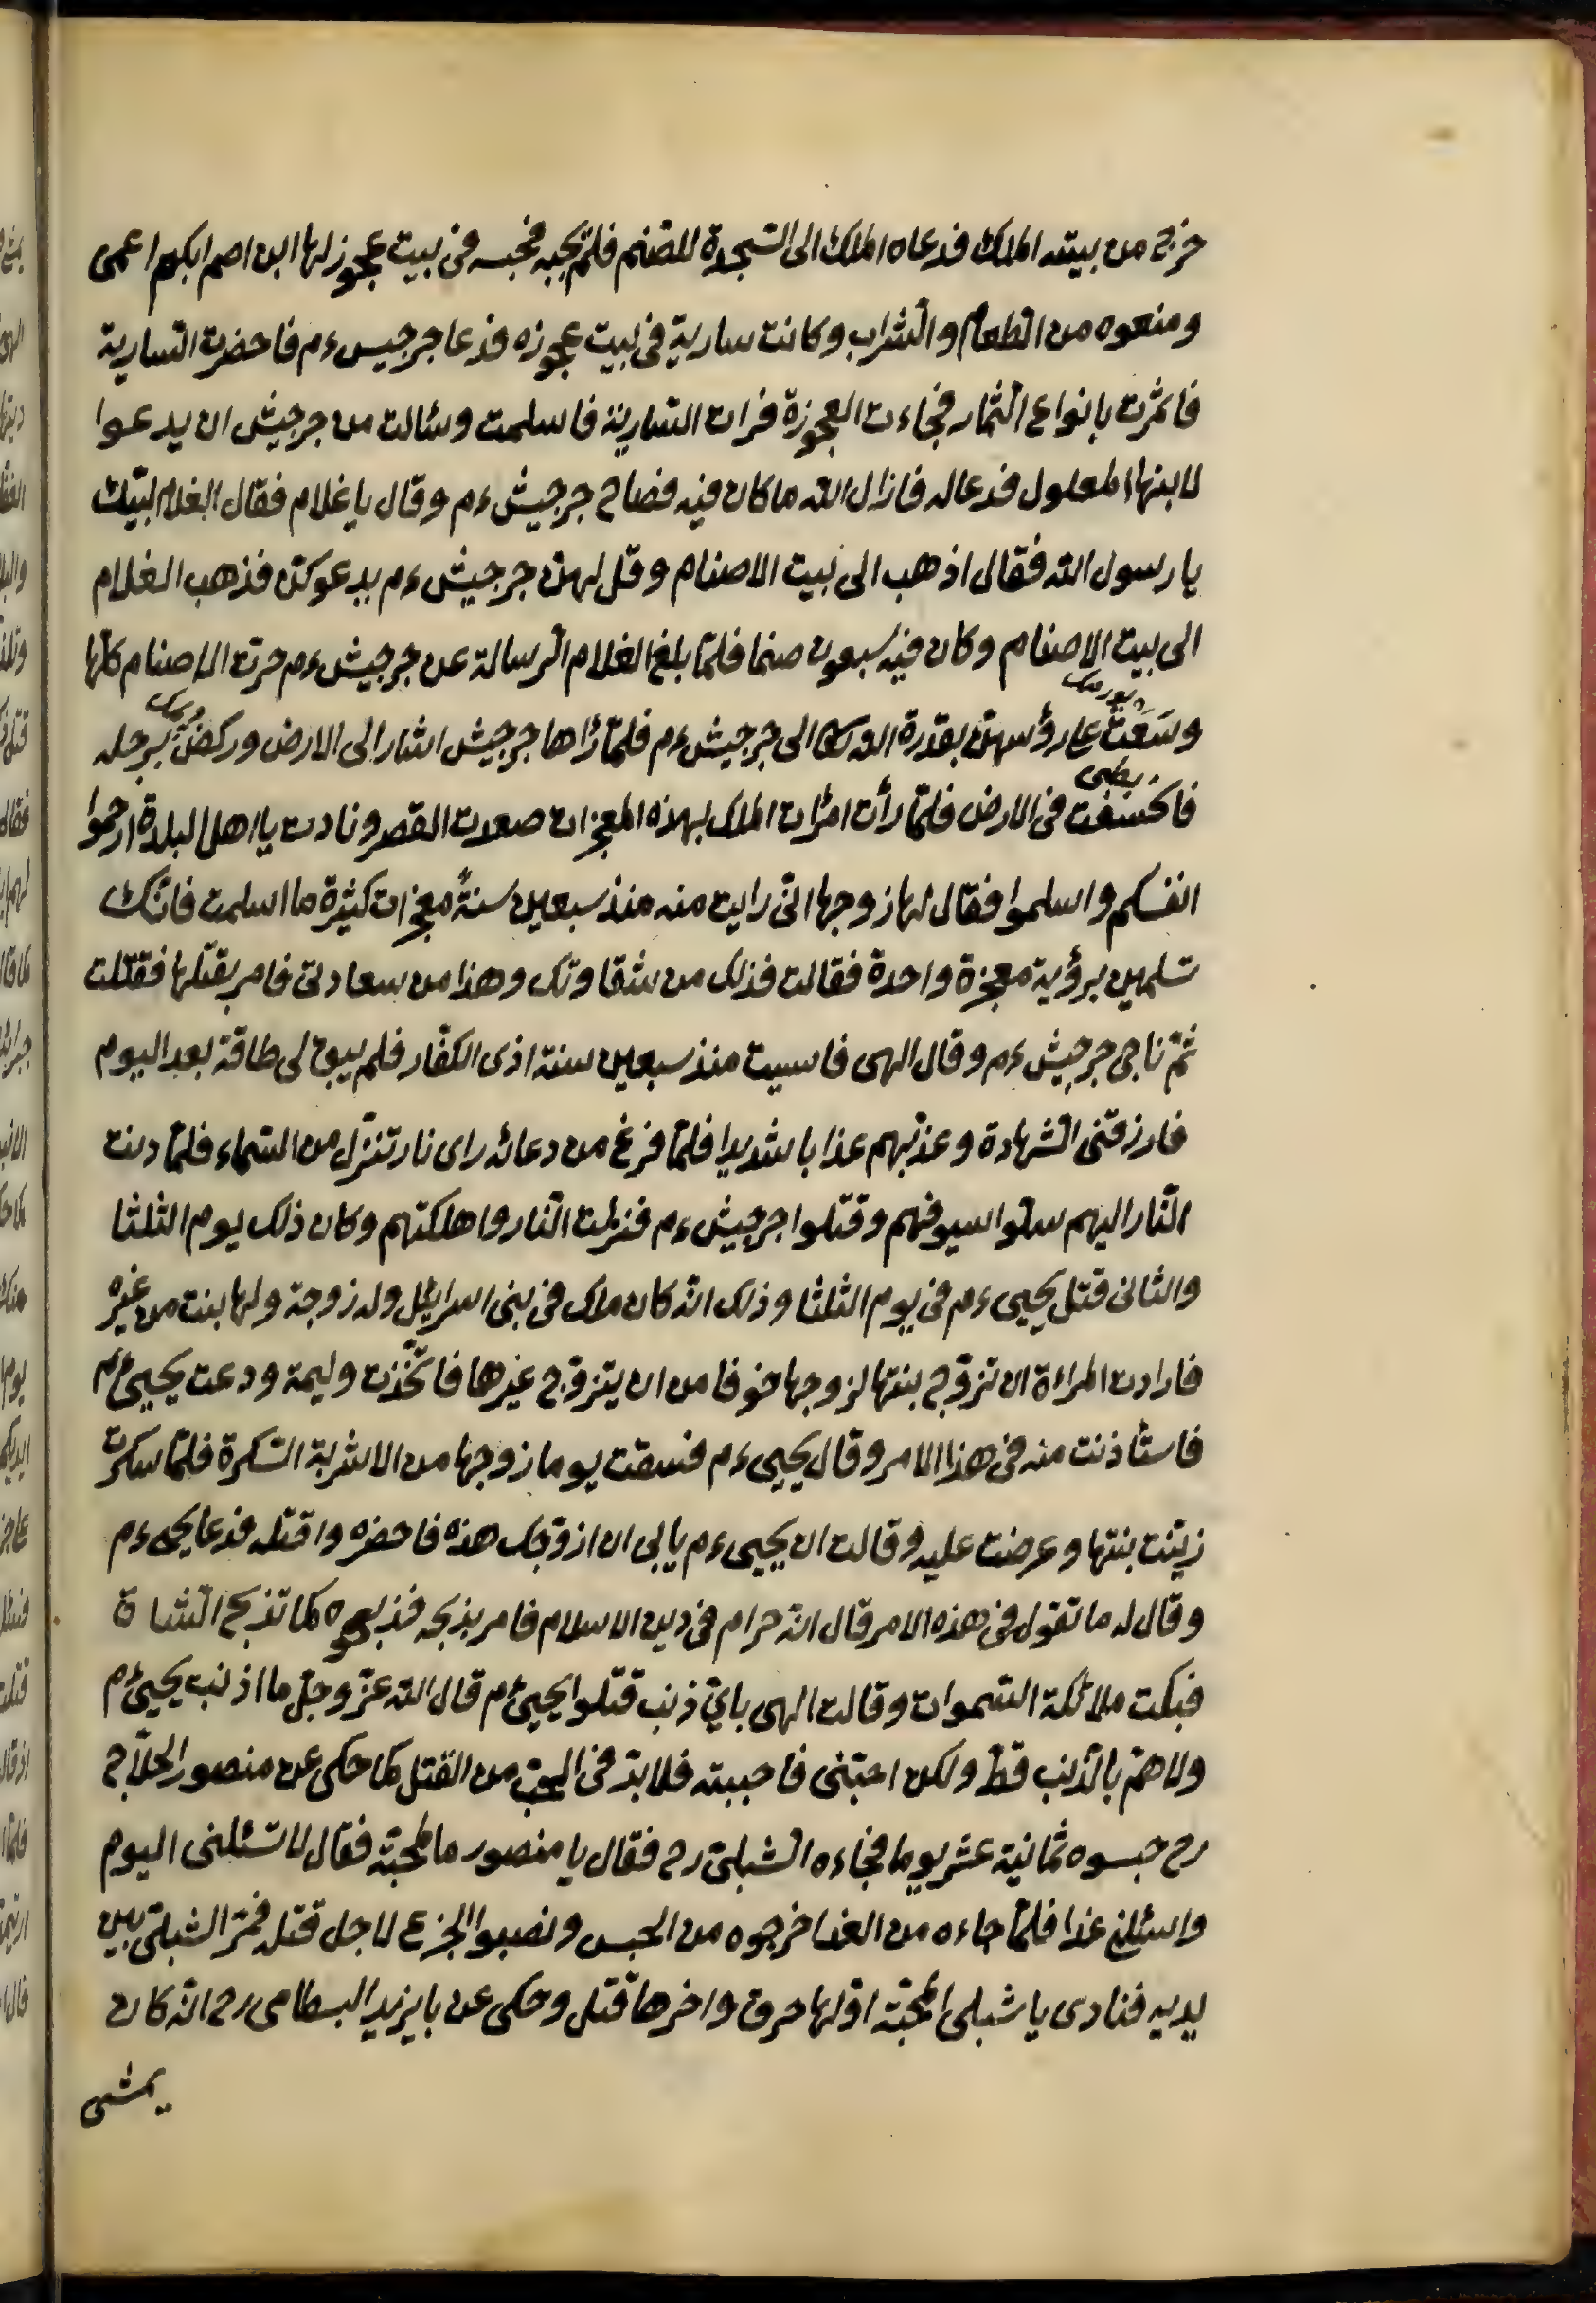 خرج من بيته الملك فدعاه الملك الى السجدة للصنم فلم يجبه فحبسه فى بيت عجوز لها ابن اصم ابكم اعمى
ومنعوه من الطعام والشراب وكانت سارية فى بيت عجوزه فدعا جرجيس ءم فاحضرت السارية
فاثمرت بانواع الثمار فجاءت العجوزة فرات السارية فاسلمت وسئالت من جرجيش ان يدعوا
لابنها المعلول فدعا له فازال الله ما كان فيه فصاح جرجيش ءم وقال يا غلام فقال الغلام لبيك
يا رسول الله فقال اذهب الى بيت الاصنام وقل لهن جرجيش ءم يدعوكن فذهب الغلام
الى بيت الاصنام وكان فيه سبعون صنما فلما بلغ الغلام الرسالة عن جرجيش ءم خرت الاصنام كلها
وسَعَتْ على رؤسهن بقدرة الله تعالى الى جرجيش ءم فلما رٰاها جرجيش اشار الى الارض وركض برجله
فاخسفت فى الارض فلما رأت امرٔات الملك بهذه المعجزات صعدت القصر ونادت يا اهل البلدة ارحموا
انفسكم واسلموا فقال لها زوجها انى رايت منه منذ سبعين سنةً معجزات كثيرة ما اسلمت فانك
تسلمين برؤية معجزة واحدة فقالت فذلك من شقاوتك وهذا من سعادتى فامر بقتلها فقتلت
ثم ناجى جرجيش ءم وقال الهى قاسيت منذ سبعين سنة اذى الكفار فلم يبق لى طاقة بعد اليوم
فارزقنى الشهادة وعذبهم عذابا شديدا فلما فرغ من دعائه راى نار تنزل من السماء فلما دنت
النار اليهم سلوا سيوفهم وقتلوا جرجيش ءم فنزلت النار واهلكتهم وكان ذلك يوم الثلثا
والثانى قتل يحيى ءم فى يوم الثلثا وذلك انه كان ملك فى بنى اسرايل وله زوجة ولها بنت من غيره
فارادت المراة ان تزوج بنتها لزوجها خوفا من ان يتزوج غيرها فاتخذت وليمة ودعت يحيى ءم
فاستأذنت منه فى هذا الامر وقال يحيى ءم فسقت يوما زوجها من الاشربة السكرة فلما سكرت
زينت بنتها وعرضت عليه وقالت ان يحيى ءم يابى ان ازوجك هذه فاحضره واقتله فدعا يحيى ءم
وقال له ما تقول فى هذه الامر قال انه حرام فى دين الاسلام فامر بذبحه فذبحوه كما تذبح الشاة
فبكت ملائكة السموات وقالت الهى باىّ ذنب قتلوا يحيى ءم قال الله عز وجل ما اذنب يحيى ءم
ولا هم بالذنب قط ولكن احبنى فاحببته فلا بد فى الحب من القتل كما حكى عن منصور الحلاج
رح حبسوه ثمانية عشر يوما فجاءه الشبلى رح فقال يا منصور ما المحبة فقال لا تسئلنى اليوم
واسئلنى غدا فلما جاءه من الغد اخرجوه من الحبس ونصبوا الجزع لاجل قتله فمر الشبلى بين
يديه فنادى يا شبلى المحبة اولها حرق واخرها قتل وحكى عن بايزيد البسطامى رح انه كان
يمشى